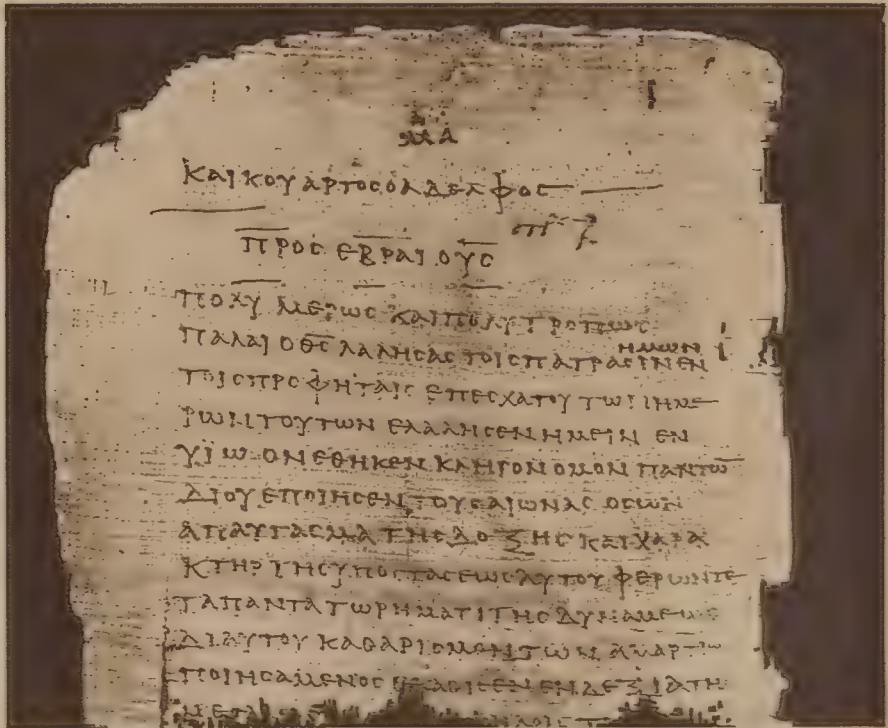 ΜΑ
ΚΑΙ ΚΟΥΑΡΤΟϹ Ο ΑΔΕΛΦΟϹ
ΠΡΟϹ ΕΒΡΑΙΟΥϹ
ΠΟΛΥΜΕΡΩϹ ΚΑΙ ΠΟΛΥΤΡΟΠΩϹ
ΗΜΩΝ
ΠΑΛΑΙ Ο Θ̅Ϲ̅ ΛΑΛΗϹΑϹ ΤΟΙϹ ΠΑΤΡΑϹΙΝ ΕΝ
ΤΟΙϹ ΠΡΟΦΗΤΑΙϹ ΕΠ ΕϹΧΑΤΟΥ ΤΩΝ ΗΜΕ
ΡΩΝ ΤΟΥΤΩΝ ΕΛΑΛΗϹΕΝ ΗΜΕΙΝ ΕΝ
ΥΪΩ ΟΝ ΕΘΗΚΕΝ ΚΛΗΡΟΝΟΜΟΝ ΠΑΝΤΩ̅
ΔΙ ΟΥ ΕΠΟΙΗϹΕΝ ΤΟΥϹ ΑΙΩΝΑϹ ΟϹ ΩΝ
ΑΠΑΥΓΑϹΜΑ ΤΗϹ ΔΟΞΗϹ ΚΑΙ ΧΑΡΑ
ΚΤΗΡ ΤΗϹ ΥΠΟϹΤΑϹΕΩϹ ΑΥΤΟΥ ΦΕΡΩΝ ΤΕ
ΤΑ ΠΑΝΤΑ ΤΩ ΡΗΜΑΤΙ ΤΗϹ ΔΥΝΑΜΕΩϹ
ΔΙ ΑΥΤΟΥ ΚΑΘΑΡΙϹΜΟΝ ΤΩΝ ΑΜΑΡΤΙΩ̅
ΠΟΙΗϹΑΜΕΝΟϹ ΕΚΑΘΙϹΕΝ ΕΝ ΔΕΞΙΑ ΤΗ